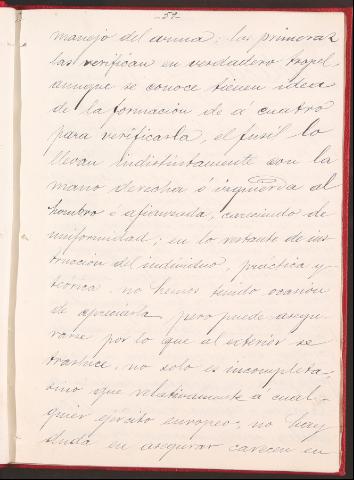 -51-
manejo del arma; las primeras
las verifican en verdadero tropel
aunque se conoce tienen idea
de la formacion de á cuatro
para verificarla, el fusil lo
llevan indistintamente con la
mano derecha é izquierda al
hombro ó afianzada, careciendo de
uniformidad; en lo restante de ins-
truccion del individuo, práctica y
teórica no hemos tenido ocasion
de apreciarla pero puede asegu-
rarse por lo que al exterior se
trasluce, no solo es incompleta
sinó que relativamente á cual-
quier ejército europeo, no hay
duda en asegurar carecen en